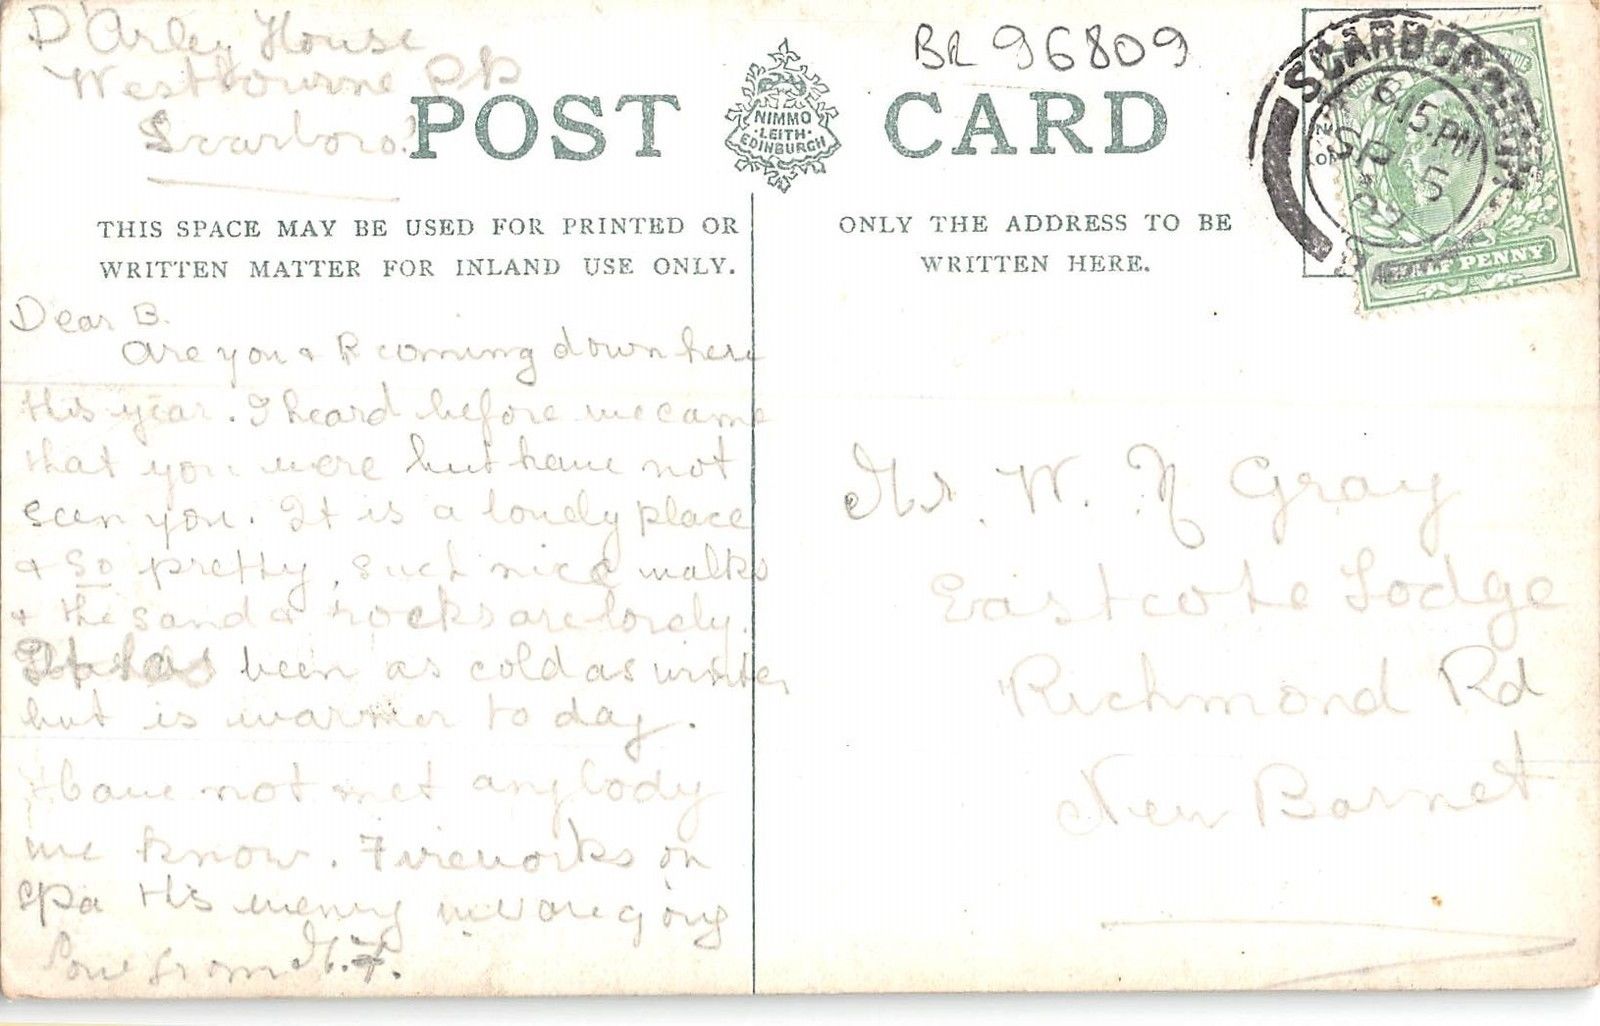 D'Arley House
Westbourne Pk
Scarboro'
POST CARD
NIMMO
LEITH
EDINBURGH
BR 96809
SCARBOROUGH
6.15.PM
SP 5
09
HALF PENNY
THIS SPACE MAY BE USED FOR PRINTED OR
WRITTEN MATTER FOR INLAND USE ONLY.
ONLY THE ADDRESS TO BE
WRITTEN HERE.
Dear B.
Are you & R coming down here
this year. I heard before we came
that you were but have not
seen you. It is a lovely place
& so pretty, such nice walks
& the sand & rocks are lovely.
It has been as cold as winter
but is warmer to day.
Have not met anybody
we know. Fireworks on
Spa this evening we are going
Love from M.F.
Mr W. N Gray
Eastcote Lodge
Richmond Rd
New Barnet